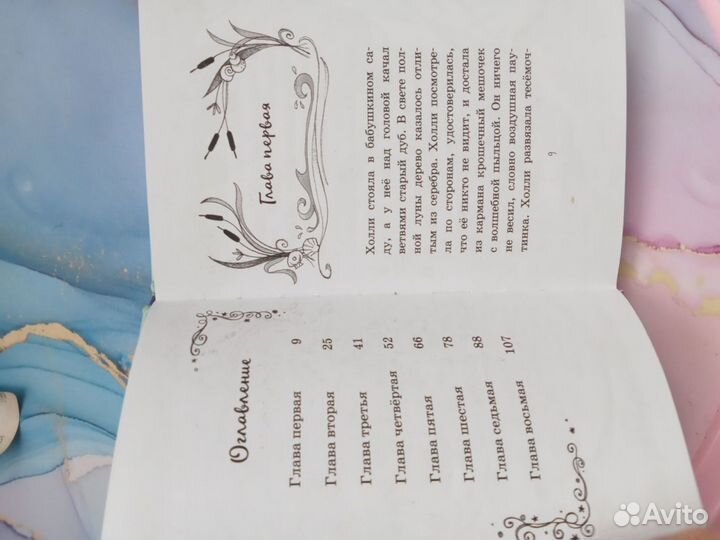 Оглавление
Глава первая 9
Глава вторая 25
Глава третья 41
Глава четвёртая 52
Глава пятая 66
Глава шестая 78
Глава седьмая 88
Глава восьмая 107
Глава первая
Холли стояла в бабушкином са-
ду, а у неё над головой качал
ветвями старый дуб. В свете пол-
ной луны дерево казалось отли-
тым из серебра. Холли посмотре-
ла по сторонам, удостоверилась,
что её никто не видит, и достала
из кармана крошечный мешочек
с волшебной пыльцой. Он ничего
не весил, словно воздушная пау-
тинка. Холли развязала тесёмоч-
9
Avito